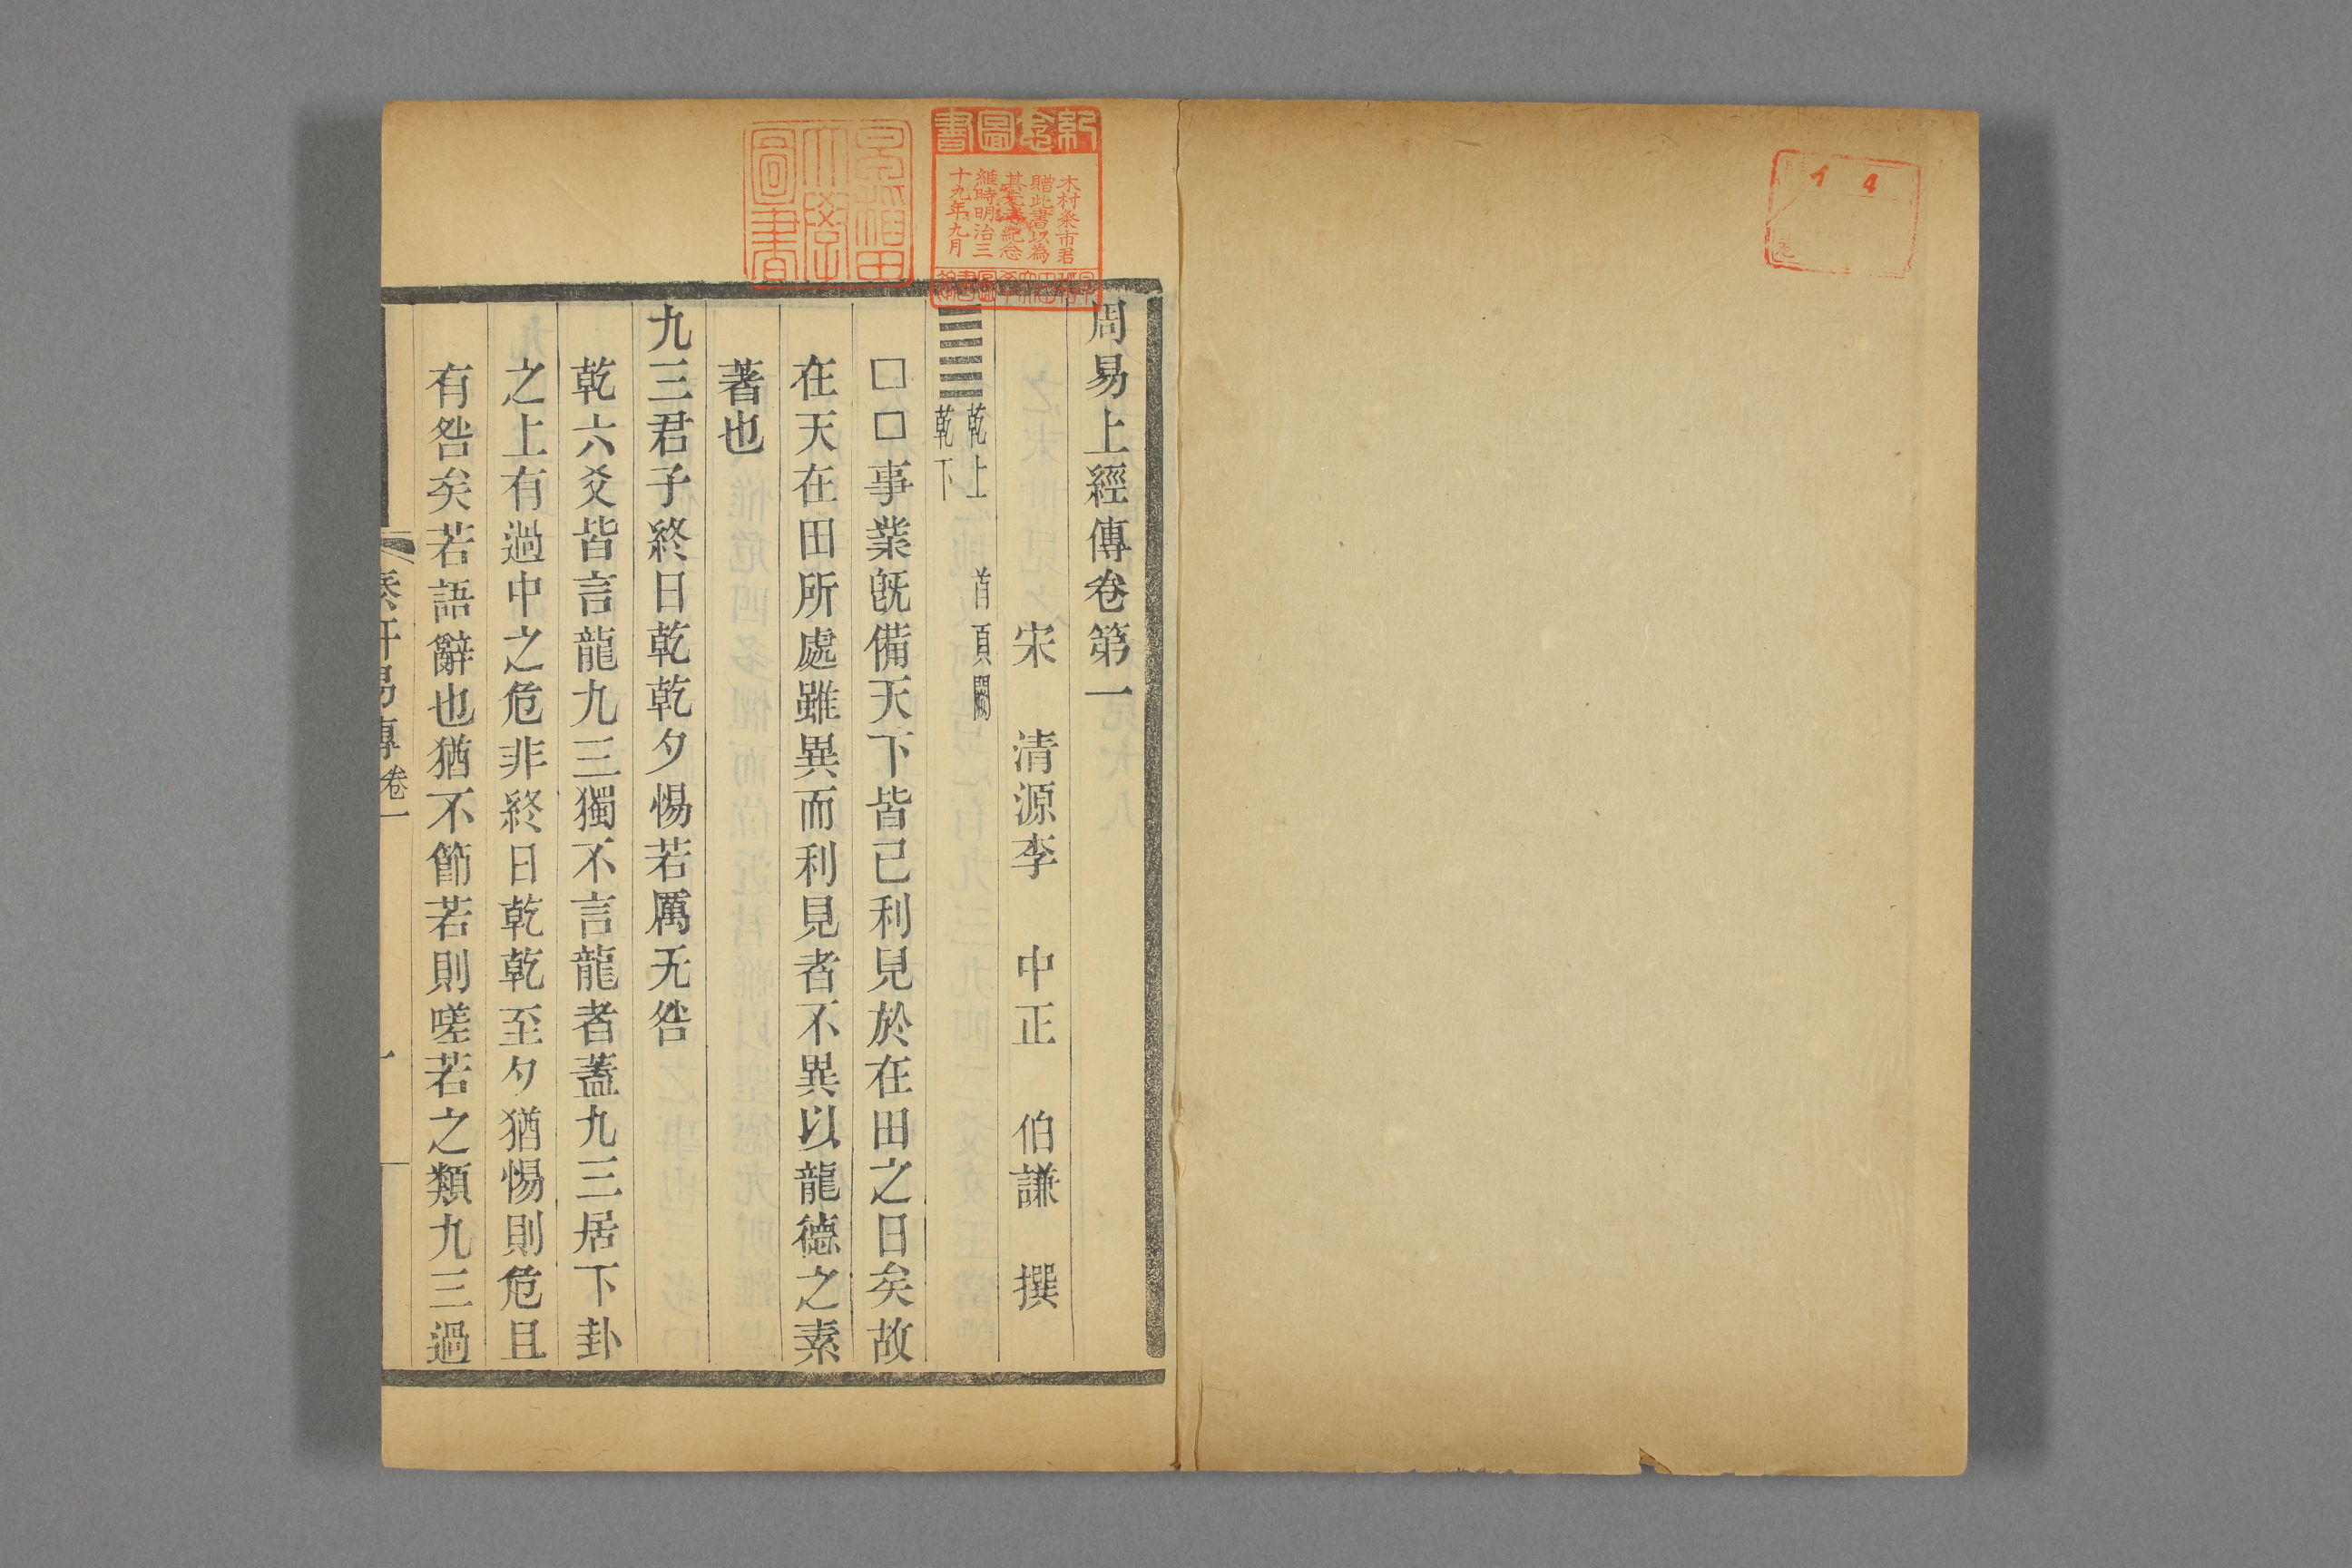 周易上經傳卷第一
宋 清源李 中正 伯謙 撰
乾上
乾下 首頁闕
□□事業旣備天下皆已利見於在田之日矣故
在天在田所處雖異而利見者不異以龍德之素
著也
九三君子終日乾乾夕惕若厲无咎
乾六爻皆言龍九三獨不言龍者蓋九三居下卦
之上有過中之危非終日乾乾至夕猶惕則危且
有咎矣若語辭也猶不節若則嗟若之類九三過
泰軒易傳 卷一 一
紀念圖書
木村粂市君
贈此書以為
紀念
維時明治三
十九年九月
早稲田大學圖書